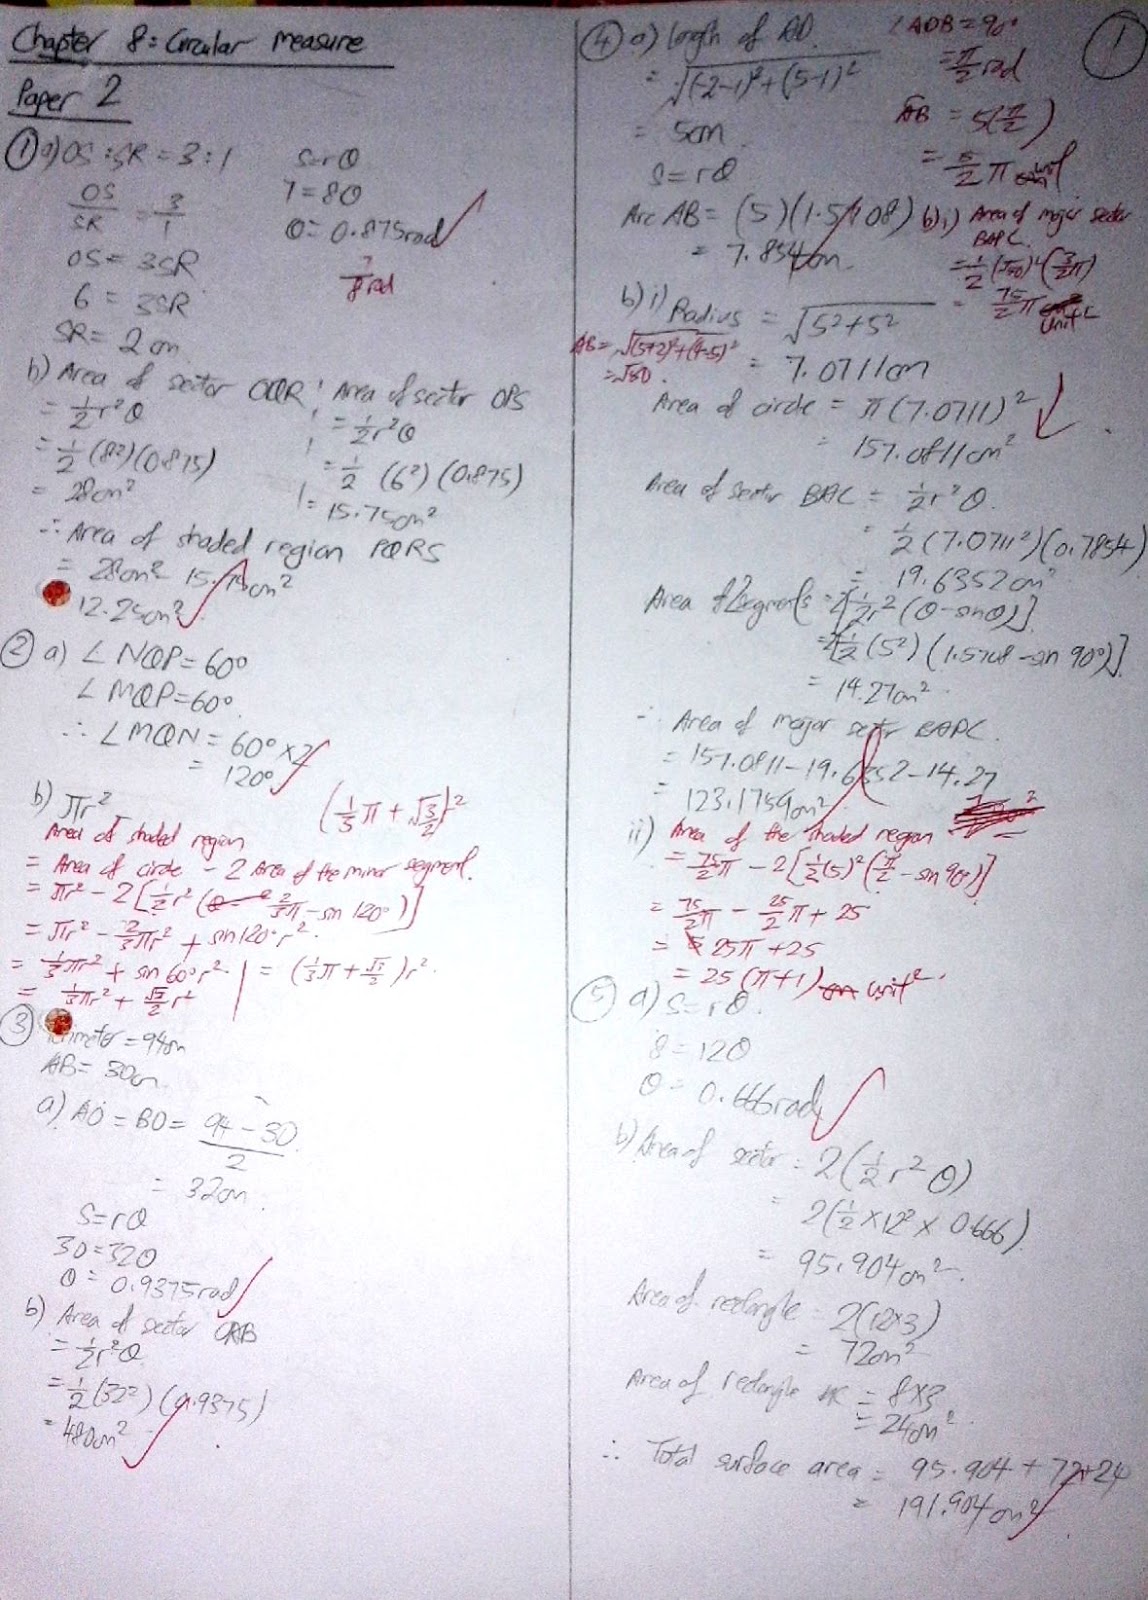 Chapter 8: Circular measure
Paper 2
① a) OS : SR = 3 : 1
OS/SR = 3/1
OS = 3SR
6 = 3SR
SR = 2cm
S = rθ
7 = 8θ
θ = 0.875rad
7/8 rad
b) Area of sector OQR
= 1/2r²θ
= 1/2 (8²)(0.875)
= 28cm²
Area of sector OPS
= 1/2r²θ
= 1/2 (6²)(0.875)
= 15.75cm²
∴ Area of shaded region PQRS
= 28cm² 15.75cm²
12.25cm²
② a) ∠NQP = 60°
∠MQP = 60°
∴ ∠MQN = 60° × 2
= 120°
b) πr²
(1/3π + √3/2)r²
Area of shaded region
= Area of circle - 2 Area of the minor segment.
= πr² - 2[1/2r²(2/3π - sin 120°)]
= πr² - 2/3πr² + sin120°r²
= 1/3πr² + sin 60°r²
= 1/3πr² + √3/2r²
= (1/3π + √3/2)r²
③
Perimeter = 94cm
AB = 30cm
a) AO = BO = (94 - 30)/2
= 32cm
S = rθ
30 = 32θ
θ = 0.9375rad
b) Area of sector OAB
= 1/2r²θ
= 1/2(32²)(0.9375)
= 480cm²
④ a) length of AD
= √(-2-1)²+(5-1)²
= 5cm
S = rθ
Arc AB = (5)(1.5708)
= 7.854cm
①
∠ADB = 90°
= π/2 rad
AB = 5(π/2)
= 5/2π unit
b) i) Area of major sector BAPC
= 1/2(√50)²(3/2π)
= 75/2π unit²
b) i) Radius = √5²+5²
= 7.0711cm
AB = √(5+2)²+(4-5)²
= √50.
Area of circle = π(7.0711)²
= 157.0811cm²
Area of sector BAC = 1/2r²θ
= 1/2(7.0711²)(0.7854)
= 19.6352cm²
Area of 2 segments = 2[1/2r²(θ - sinθ)]
= 2[1/2(5²)(1.5708 - sin 90°)]
= 14.27cm²
∴ Area of major sector BAPC
= 157.0811 - 19.6352 - 14.27
= 123.1759cm²
ii) Area of the shaded region
= 75/2π - 2[1/2(5)²(π/2 - sin 90°)]
= 75/2π - 25/2π + 25
= 25π + 25
= 25(π+1) unit²
⑤ a) S = rθ
8 = 12θ
θ = 0.666rad
b) Area of sector = 2(1/2r²θ)
= 2(1/2 × 12² × 0.666)
= 95.904cm²
Area of rectangle = 2(12×3)
= 72cm²
Area of rectangle = 8×3
= 24cm²
∴ Total surface area = 95.904 + 72 + 24
= 191.904cm²